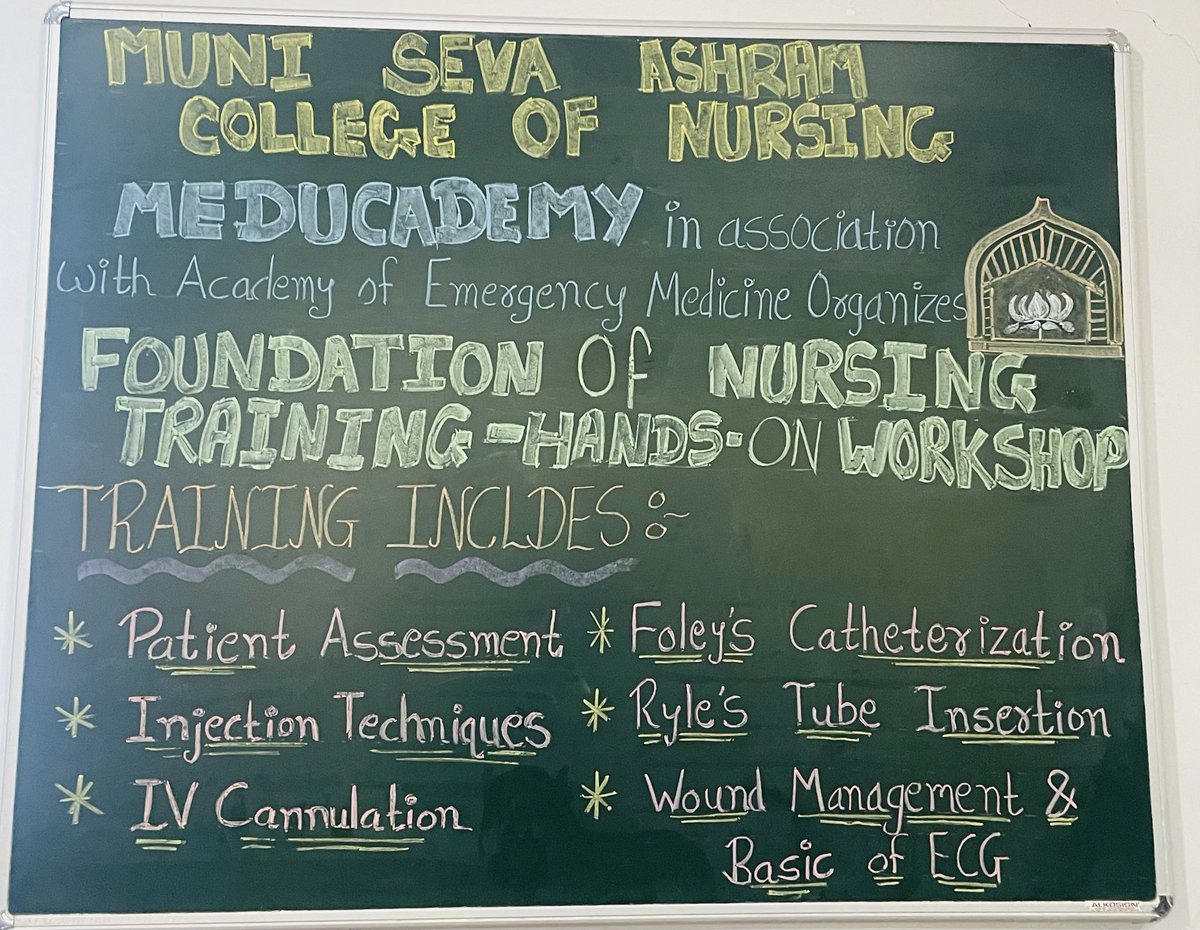 MUNI SEVA ASHRAM
COLLEGE OF NURSING
MEDUCADEMY in association
with Academy of Emergency Medicine Organizes
FOUNDATION Of NURSING
TRAINING-HANDS-ON WORKSHOP
TRAINING INCLDES :-
* Patient Assessment
* Injection Techniques
* IV Cannulation
* Foley's Catheterization
* Ryle's Tube Insertion
* Wound Management &
Basic of ECG
ALKOSIGN